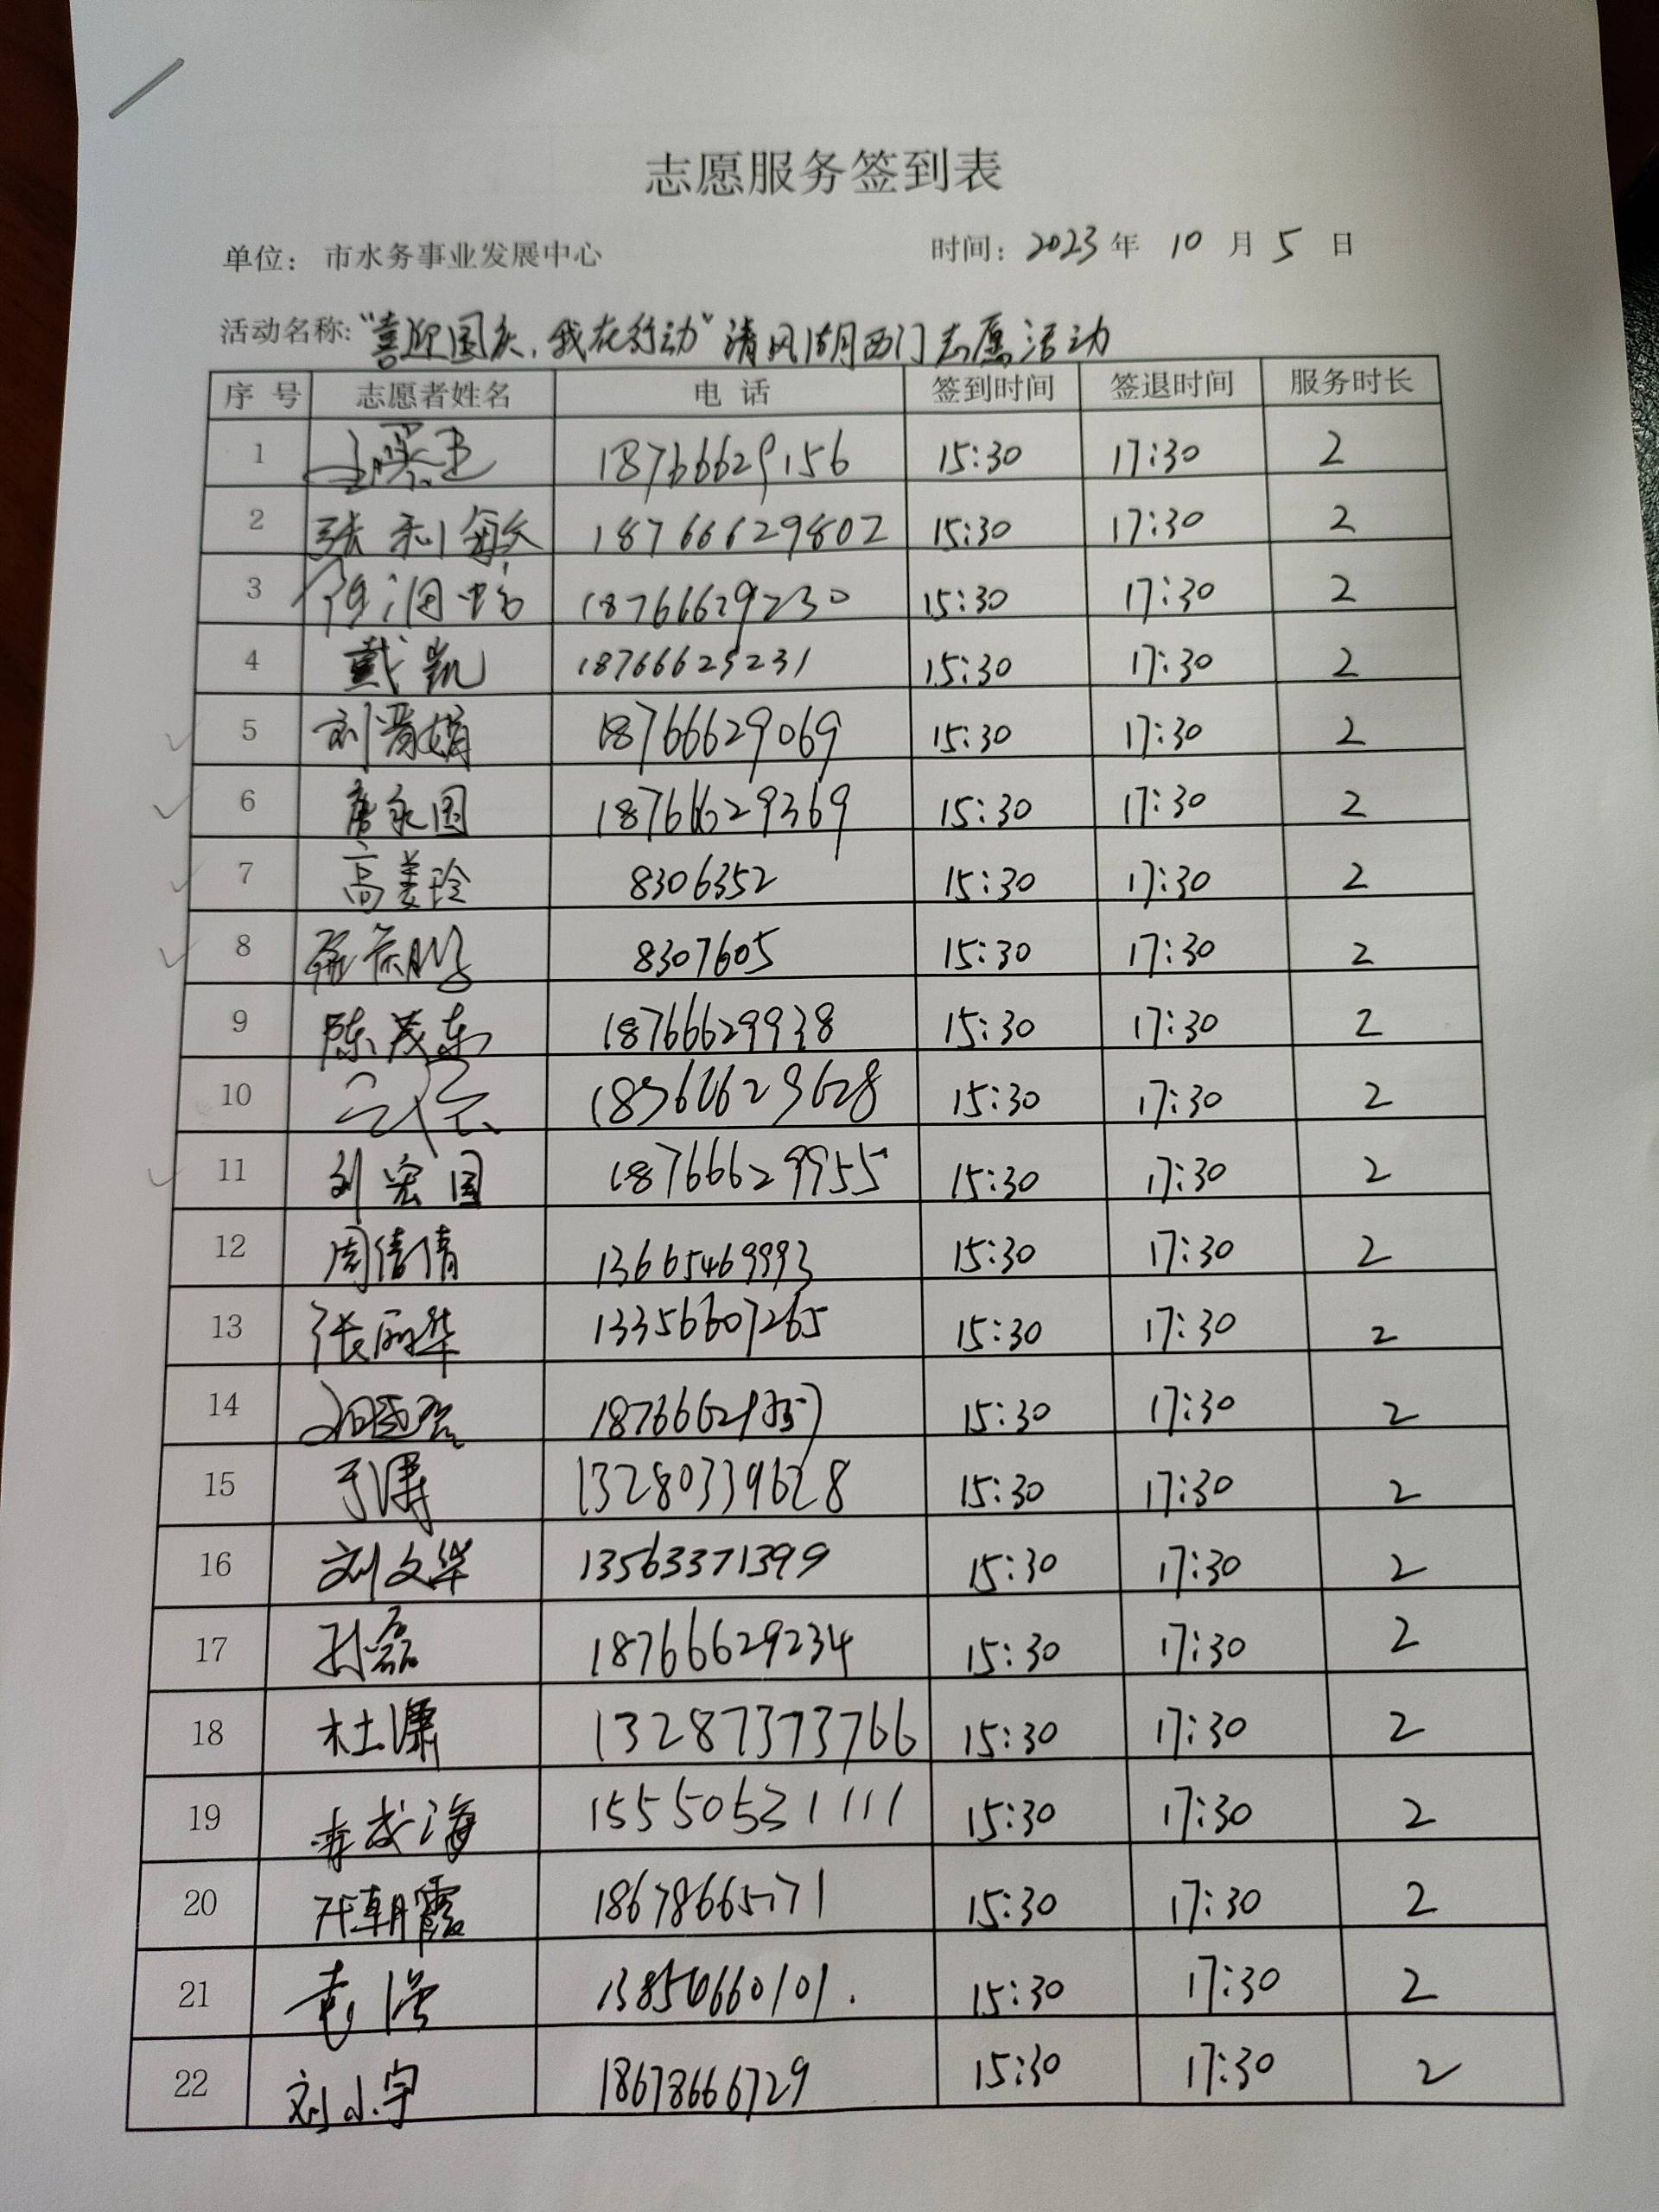 志愿服务签到表
单位：市水务事业发展中心 时间：2023年 10月 5日
活动名称:“喜迎国庆,我在行动”清风湖西门志愿活动
序号 志愿者姓名 电话 签到时间 签退时间 服务时长
1 18766629156 15:30 17:30 2
2 张利敏 18766629802 15:30 17:30 2
3 18766629230 15:30 17:30 2
4 戴凯 18766629231 15:30 17:30 2
5 刘晋娟 18766629069 15:30 17:30 2
6 唐永国 18766629369 15:30 17:30 2
7 高美玲 8306352 15:30 17:30 2
8 8307605 15:30 17:30 2
9 陈茂东 18766629938 15:30 17:30 2
10 15:30 17:30 2
11 刘宏国 18766629955 15:30 17:30 2
12 周倩倩 13665469993 15:30 17:30 2
13 张丽华 13356607265 15:30 17:30 2
14 15:30 17:30 2
15 于涛 13280339628 15:30 17:30 2
16 刘文华 13563371399 15:30 17:30 2
17 孙磊 18766629234 15:30 17:30 2
18 杜潇 13287373766 15:30 17:30 2
19 李成海 15550531111 15:30 17:30 2
20 15:30 17:30 2
21 袁浩 15:30 17:30 2
22 刘小宇 18678666729 15:30 17:30 2